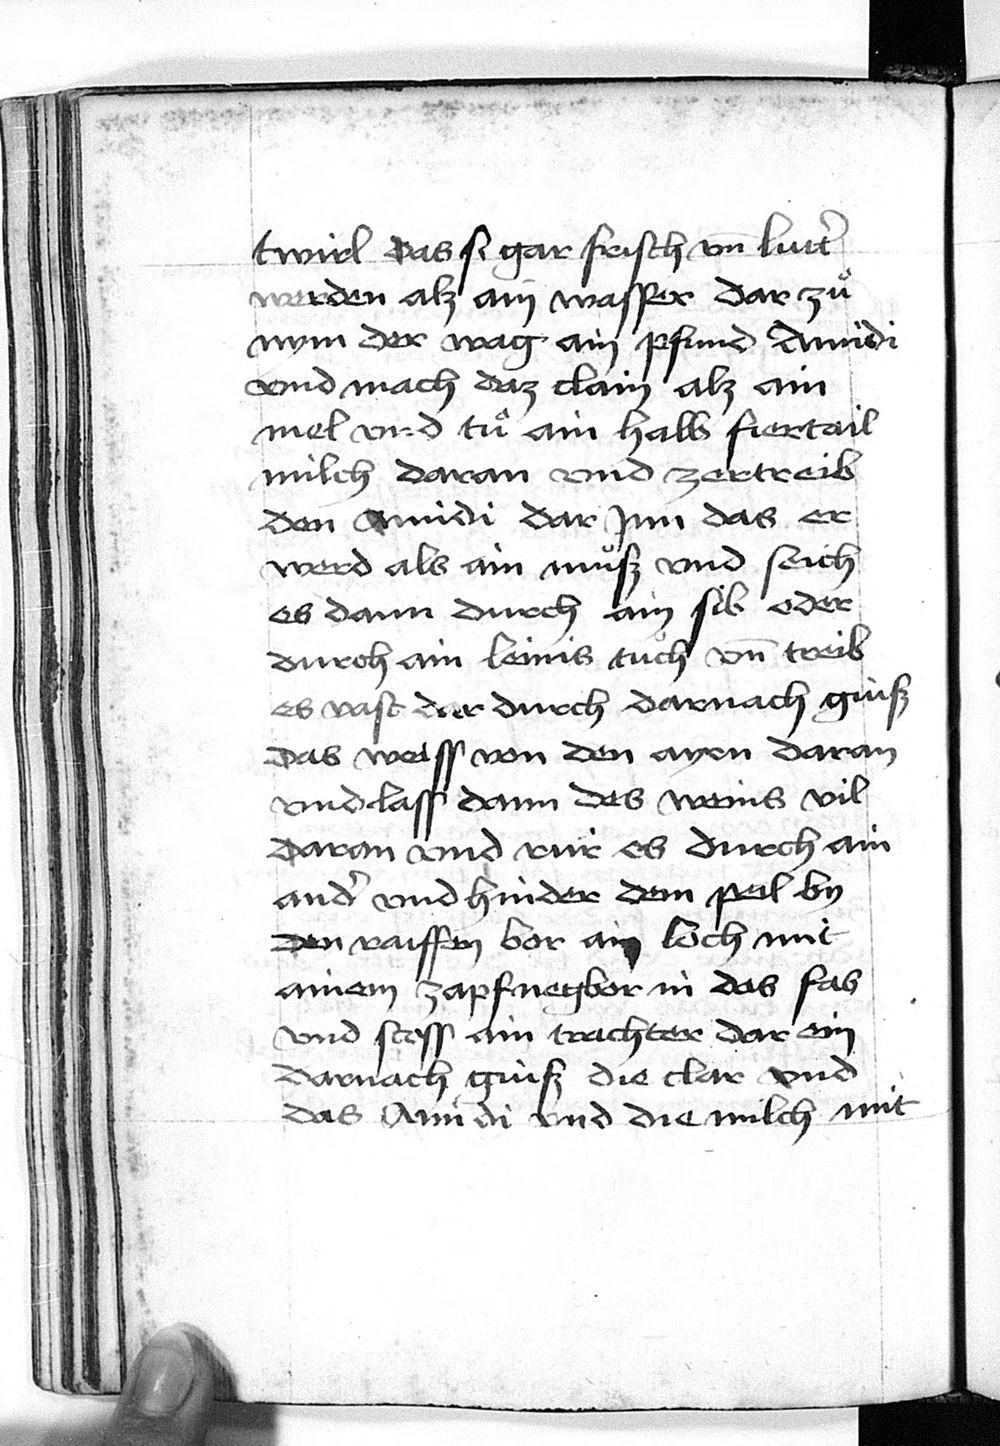 twirl das si gar frisch vn̄ lutt͛
werden alz ain wasser dar zuͦ
nym der wag ain pfund Amidi
vnd mach daz clain alz ain
mel vnd tuͦ ain halb fiertail
milch daran vnd zertreib
den Amidi dar Jnn das er
werd als ain muͦß vnd seich
es dann durch ain sib oder
durch ain leinis tuͦch vn̄ treib
es vast dar durch darnach giuß
das weiss von den ayrn daran
vnd lass dann des weins vil
daran vnd rur es durch ain
and͛ vnd hinder dem peil by
den raiffen bor ain loch mit
ainem zapfnegbor in das fas
vnd stoss ain trachter dar ein
darnach giuß die clar vnd
das Amidi vnd die milch mit